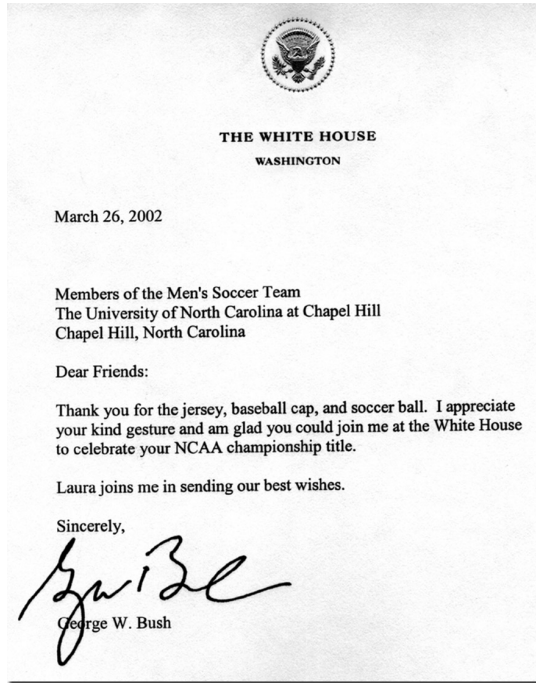 THE WHITE HOUSE
WASHINGTON
March 26, 2002
Members of the Men's Soccer Team
The University of North Carolina at Chapel Hill
Chapel Hill, North Carolina
Dear Friends:
Thank you for the jersey, baseball cap, and soccer ball. I appreciate
your kind gesture and am glad you could join me at the White House
to celebrate your NCAA championship title.
Laura joins me in sending our best wishes.
Sincerely,
George W. Bush